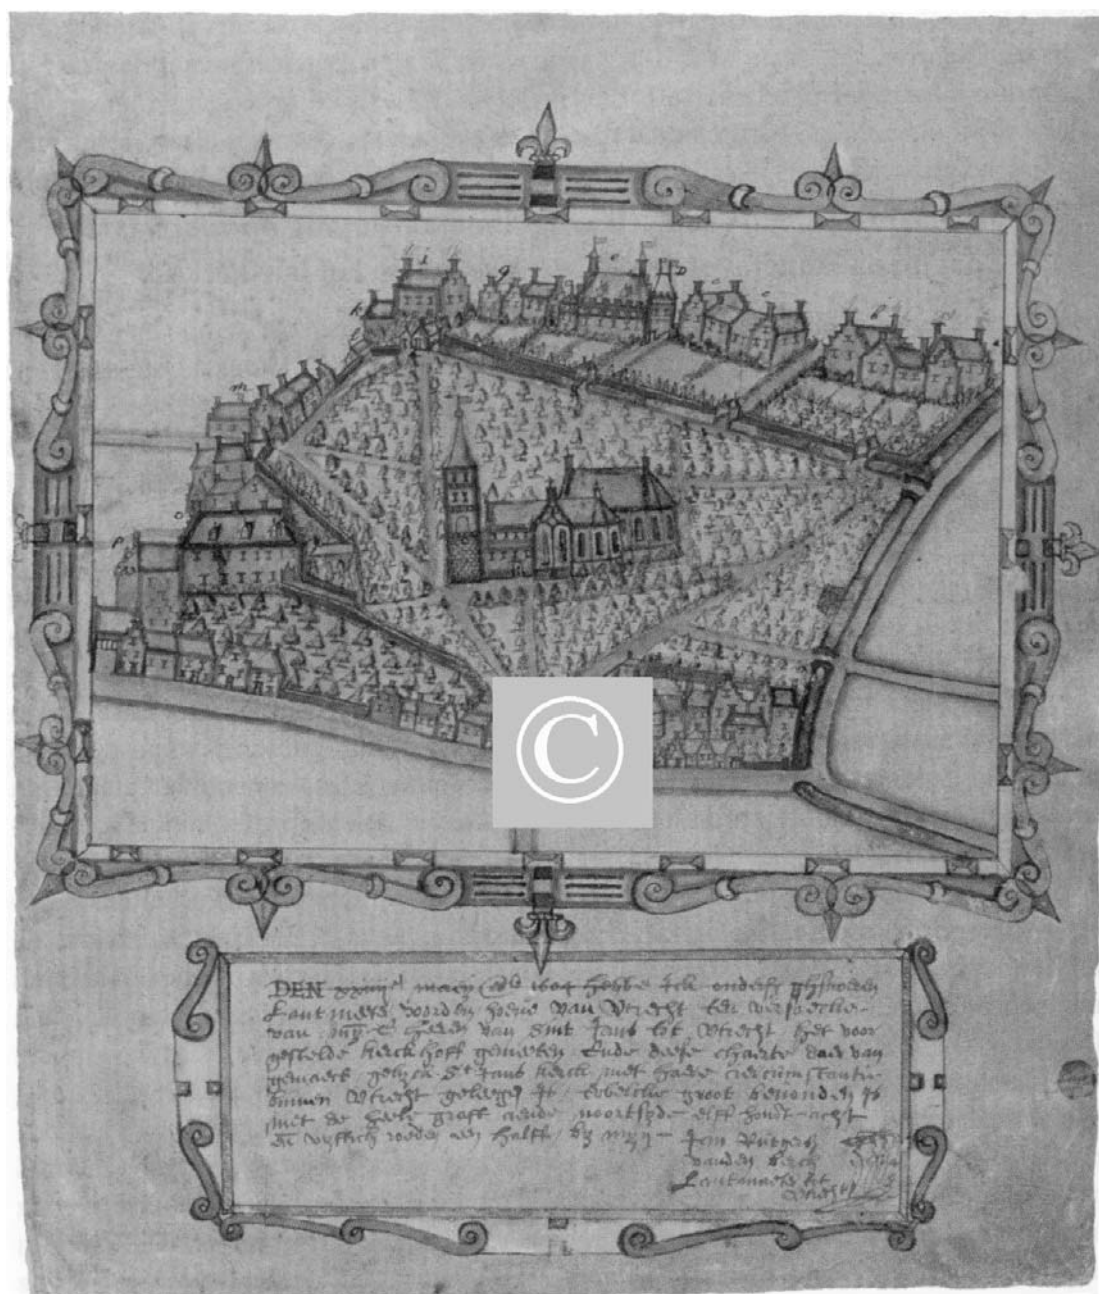 k
i
g
e
D
c
c
b
m
o
p
©
DEN xxiiij maij Ao 1604 hebbe ick onderss ghesworen
Lantmeter vorden hove van Vtrecht ter versoecke
van heeren van Sint Jans tot Vtrecht het voor
gestelde kerckhoff gemeeten Ende deese chaerte daer van
gemaect gelyck St Jans kerck met haere circumstantie
binnen Vtrecht geleegen is, groot bevonden is
met de heele graft aende noortsyde elff hondt acht
en vyftich roeden een halff, by myn Jan Rutgersz
vanden Berch
Lantmeeter tot
Vtrecht